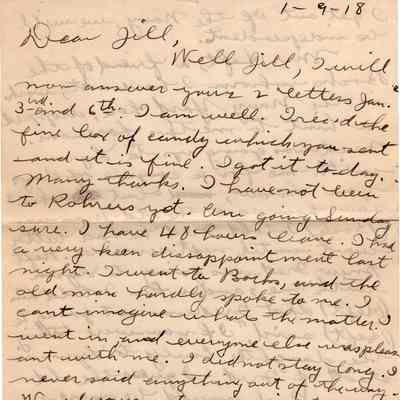 1-9-18
Dear Jill,
Well Jill, I will
now answer yours 2 letters Jan.
3rd and 6th. I am well. I rec'd the
fine box of candy which you sent
and it is fine. I got it to day.
Many thanks. I have not been
to Rohrers yet. Am going Sunday
sure. I have 48 hours leave. I had
a very keen dissappointment last
night. I went to Bochs, and the
old man hardly spoke to me. I
cant imagine whats the matter. I
went in, and everyone else was pleas
ant with me. I did not stay long. I
never said anything out of the way.